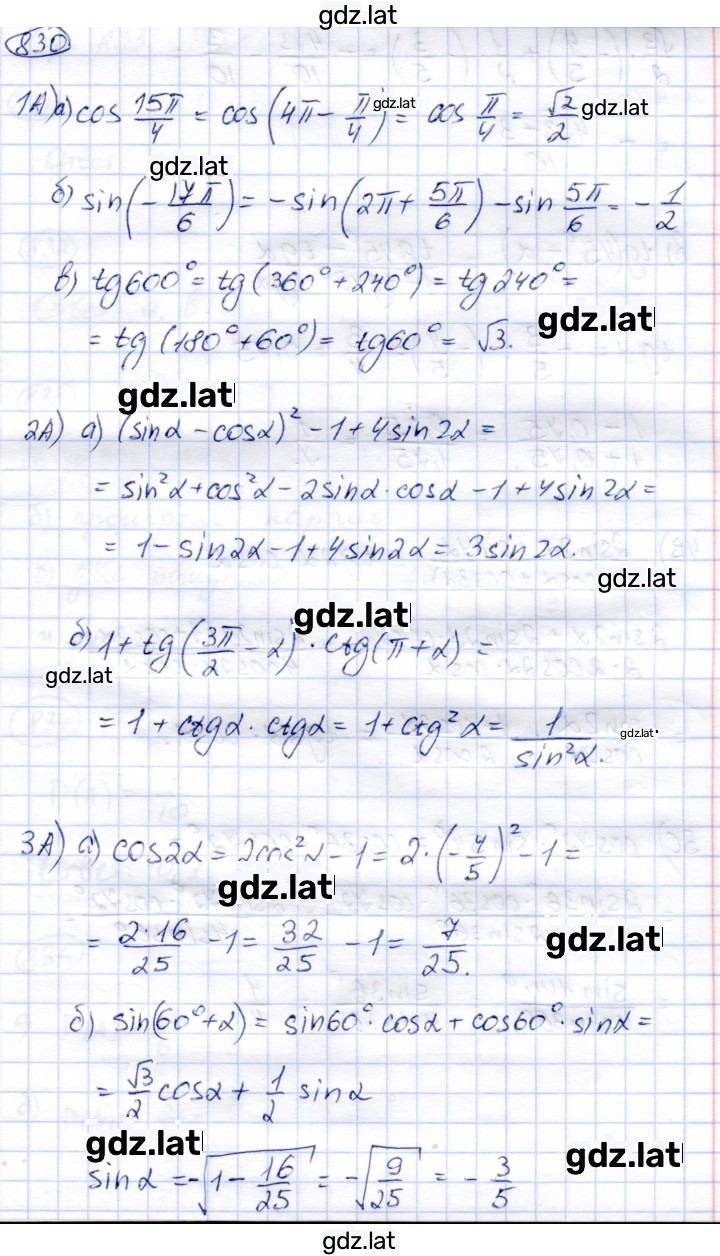 gdz.lat
830
1А) а) cos 15π/4 = cos(4π - π/4) = cos π/4 = √2/2
gdz.lat
gdz.lat
gdz.lat
б) sin(-17π/6) = -sin(2π + 5π/6) - sin 5π/6 = -1/2
в) tg600° = tg(360° + 240°) = tg240° =
= tg(180° + 60°) = tg60° = √3.
gdz.lat
gdz.lat
2А) а) (sinα - cosα)² - 1 + 4sin2α =
= sin²α + cos²α - 2sinα · cosα - 1 + 4sin2α =
= 1 - sin2α - 1 + 4sin2α = 3sin2α.
gdz.lat
gdz.lat
б) 1 + tg(3π/2 - α) · ctg(π + α) =
gdz.lat
= 1 + ctgα · ctgα = 1 + ctg²α = 1/sin²α.
gdz.lat
3А) а) cos2α = 2cos²α - 1 = 2 · (-4/5)² - 1 =
gdz.lat
= 2·16/25 - 1 = 32/25 - 1 = 7/25.
gdz.lat
б) sin(60° + α) = sin60° · cosα + cos60° · sinα =
= √3/2 cosα + 1/2 sinα
gdz.lat
gdz.lat
sinα = -√(1 - 16/25) = -√(9/25) = -3/5
gdz.lat